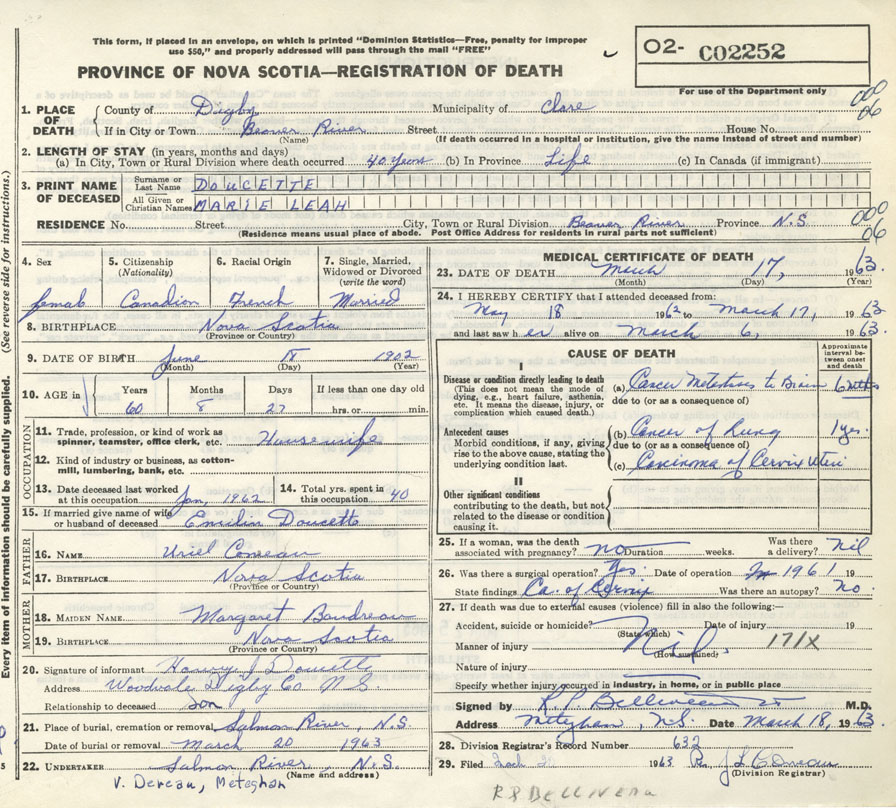 This form, if placed in an envelope, on which is printed "Dominion Statistics—Free, penalty for improper
use $50," and properly addressed will pass through the mail "FREE"
O2- C02252
PROVINCE OF NOVA SCOTIA—REGISTRATION OF DEATH
For use of the Department only
1. PLACE OF DEATH County of Digby Municipality of Clare 000 06
If in City or Town Beaver River Street House No.
(Name) (If death occurred in a hospital or institution, give the name instead of street and number)
2. LENGTH OF STAY (in years, months and days)
(a) In City, Town or Rural Division where death occurred 40 years (b) In Province Life (c) In Canada (if immigrant)
3. PRINT NAME OF DECEASED Surname or Last Name DOUCETTE
All Given or Christian Names MARIE LEAH
RESIDENCE No. Street City, Town or Rural Division Beaver River Province N.S. 000 06
(Residence means usual place of abode. Post Office Address for residents in rural parts not sufficient)
(See reverse side for instructions.)
Every item of information should be carefully supplied.
4. Sex 5. Citizenship (Nationality) 6. Racial Origin 7. Single, Married, Widowed or Divorced (write the word)
female Canadian French Married
8. BIRTHPLACE Nova Scotia
(Province or Country)
9. DATE OF BIRTH June 18 1902
(Month) (Day) (Year)
10. AGE in Years Months Days If less than one day old
60 8 27 hrs. or min.
OCCUPATION
11. Trade, profession, or kind of work as spinner, teamster, office clerk, etc. Housewife
12. Kind of industry or business, as cotton-mill, lumbering, bank, etc.
13. Date deceased last worked at this occupation Jan, 1962 14. Total yrs. spent in this occupation 40
15. If married give name of wife or husband of deceased Doucette
FATHER
16. NAME Uriel Comeau
17. BIRTHPLACE Nova Scotia
(Province or Country)
MOTHER
18. MAIDEN NAME Margaret Boudreau
19. BIRTHPLACE Nova Scotia
(Province or Country)
20. Signature of informant Doucette
Address Woodvale Digby Co N S
Relationship to deceased son
21. Place of burial, cremation or removal Salmon River, N.S.
Date of burial or removal March 20 1963
22. UNDERTAKER Salmon River, N.S.
(Name and address)
V. Deveau, Meteghan
MEDICAL CERTIFICATE OF DEATH
23. DATE OF DEATH March 17, 1963.
(Month) (Day) (Year)
24. I HEREBY CERTIFY that I attended deceased from:
May 18 1962 to March 17, 1963
and last saw her alive on March 6, 1963.
CAUSE OF DEATH
Approximate interval between onset and death
I
Disease or condition directly leading to death (a) Cancer Metastases to Brain 6 wths
(This does not mean the mode of dying, e.g., heart failure, asthenia, etc. It means the disease, injury, or complication which caused death.)
due to (or as a consequence of)
Antecedent causes (b) Cancer of Lung 1 yr.
Morbid conditions, if any, giving rise to the above cause, stating the underlying condition last.
due to (or as a consequence of)
(c) Carcinoma of Cervix Uteri
II
Other significant conditions
contributing to the death, but not related to the disease or condition causing it.
25. If a woman, was the death associated with pregnancy? no Duration weeks. Was there a delivery? Nil
26. Was there a surgical operation? Yes. Date of operation 1961 19
State findings Ca. of Cervix Was there an autopsy? No.
27. If death was due to external causes (violence) fill in also the following:—
Accident, suicide or homicide? Date of injury 19
(State which)
Manner of injury Nil 171X
(How sustained)
Nature of injury
Specify whether injury occurred in industry, in home, or in public place
Signed by R.P. Belliveau M.D.
Address Meteghan, N.S. Date March 18, 1963.
28. Division Registrar's Record Number 632
29. Filed 1963 Comeau
(Division Registrar)
RP BELLIVEAU